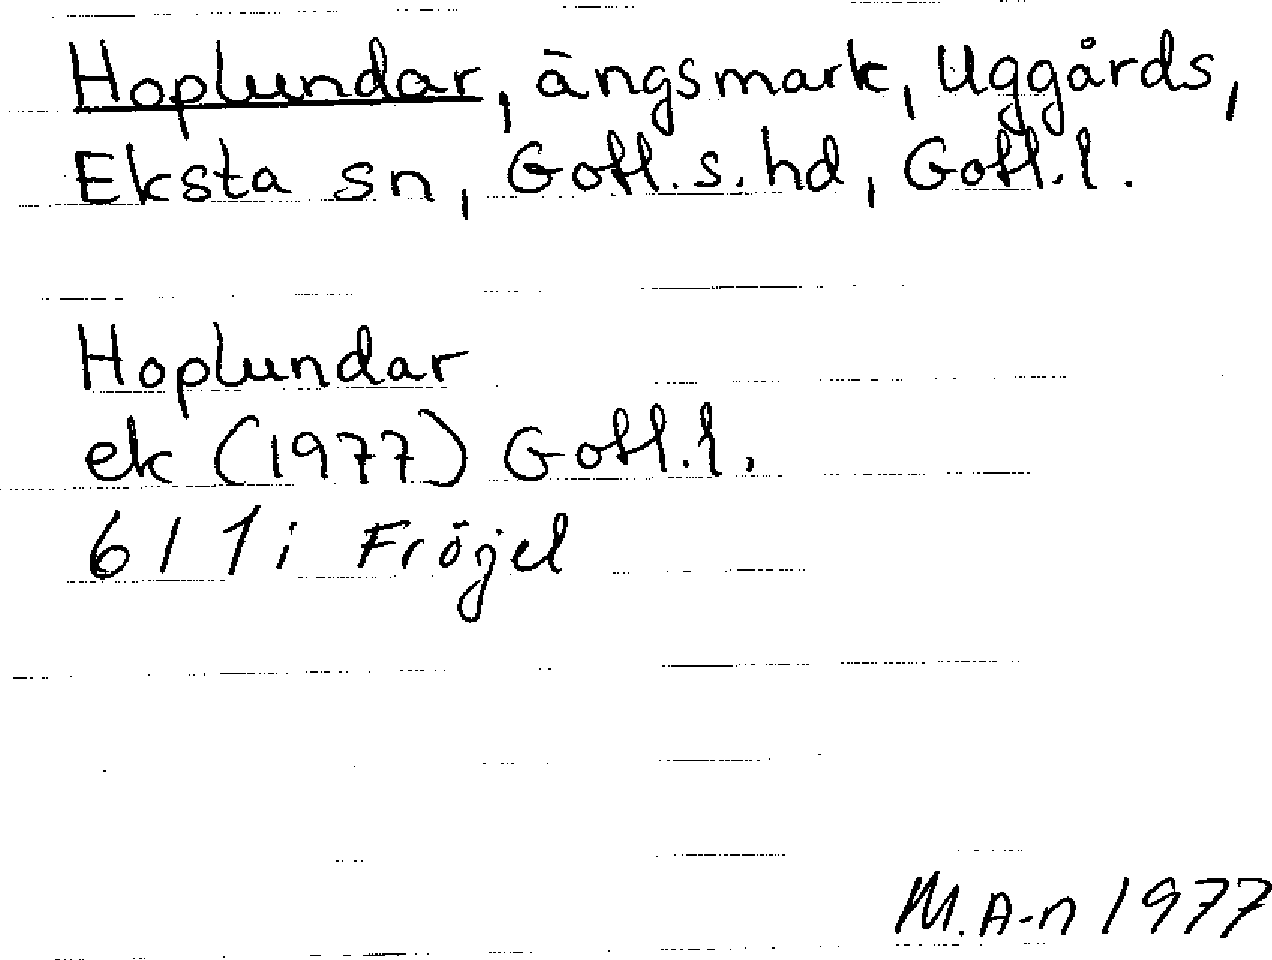 Hoplundar, ängsmark, Uggårds,
Eksta sn, Gotl. s. hd, Gotl. l.
Hoplundar
ek (1977) Gotl. l.
6 I 1 i Fröjel
M. A-n 1977